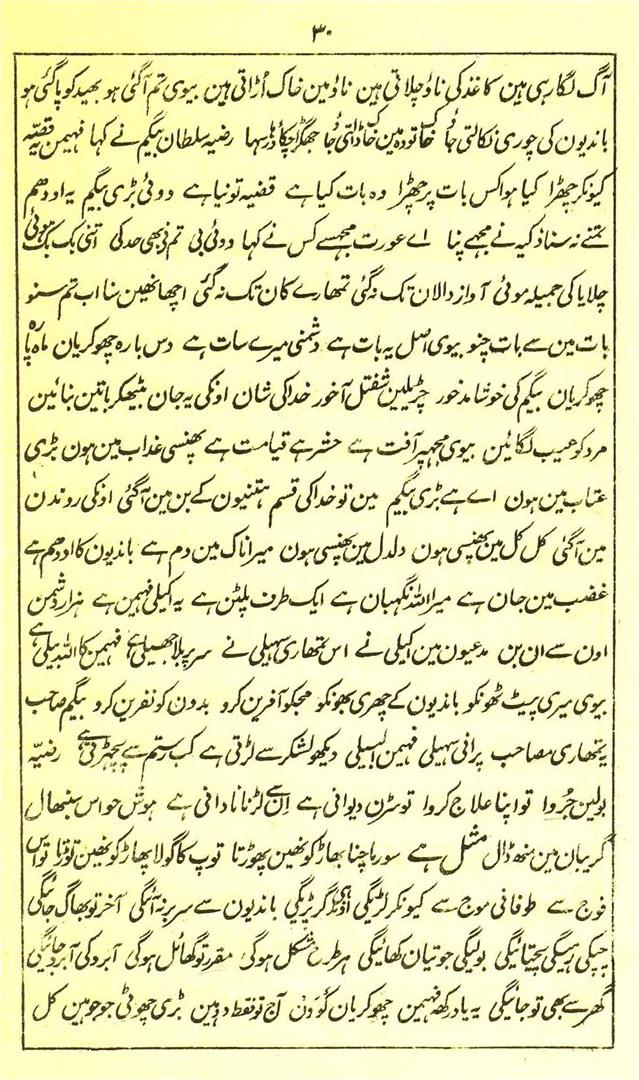 ۳۰
آگ لگا رہی ہین کاغذ کی ناؤ چلاتی ہین ناؤ مین خاک اُڑاتی ہین بیوی تم آگئی ہو بھید کو پاگئی ہو
باندیون کی چوری نکالتی جاؤ خاک تودہ مین خاک ڈالتی جاؤ جھگڑا چکاؤ رضیہ سلطان بیگم نے کہا فہیمن یہ قضیہ
کیونکر چھڑا کیا ہوا کس بات پر چھڑا وہ بات کیا ہے قضیہ تو نیا ہے دوئی بڑی بیگم یہ اودھم
تمنے نہ سنا ذکیہ نے مجھے پنا اے عورت مجھسے کس نے کہا دوئی بی تم ذبھی حد کی اتنی بک بک ہوئی
چلایا کی جمیلہ موئی آواز دالان تک نہ گئی تمھارے کان تک نہ گئی اچھا نھین سنا اب تم سنو
بات مین سے بات چنو بیوی اصل یہ بات ہے دشمنی میرے سات ہے دس بارہ چھوکریان ماہ پارہ
چھوکریان بیگم کی خوشامد خور چڑیلین شفتل آخور خدا کی شان اونکی یہ جان بیٹھکر باتین بنائین
مرد کو عیب لگائین بیوی مجھپر آفت ہے حشر ہے قیامت ہے پھنسی عذاب مین ہون بڑی
عتاب مین ہون اے ہے بڑی بیگم مین تو خدا کی قسم ہتنیون کے بن مین آگئی اونکی روندن
مین آگئی کل کل مین پھنسی ہون دلدل مین پھنسی ہون میرا ناک مین دم ہے باندیون کا اودھم ہے
غضب مین جان ہے میرا اللہ نگہبان ہے ایک طرف پلٹن ہے یہ اکیلی فہیمن ہے ہزار دشمن
اون سے ان بن مدعیون مین اکیلی نے اس تمھاری سہیلی نے سر پر بلا جھیلی ہے فہیمن کا اللہ بیلی ہے
بیوی میری پیٹ ٹھونکو باندیون کے چھری بھونکو مجکو آفرین کرو بدون کو نفرین کرو بیگم صاحب
یہ تمھاری مصاحب پرانی سہیلی فہیمن البیلی دیکھو لشکر سے لڑتی ہے کب رستم سے پچھڑتی ہے رضیہ
بولین جُروا تو اپنا علاج کروا تو سڑن دیوانی ہے اِن سے لڑنا نادانی ہے ہوش حواس سنبھال
گریبان مین منھ ڈال مثل ہے سورما چنا بھاڑ کو نھین پھوڑتا توپ کا گولا پہاڑ کو نھین توڑتا تو اس
فوج سے طوفانی موج سے کیونکر لڑیگی اوندھی گر پڑیگی باندیون سے سربر نہ آئیگی آخر تو بھاگ جائیگی
چپکی رہیگی پچتائیگی بولیگی جوتیان کھائیگی ہر طرح مشکل ہوگی مقرر تو گھائل ہوگی آبرو کی آبرو جائیگی
گھر سے بھی تو جائیگی یہ یاد رکھ فہیمن چھوکریان کودن آج تو فقط دو ہین بڑی چھوٹی جو جو ہین کل